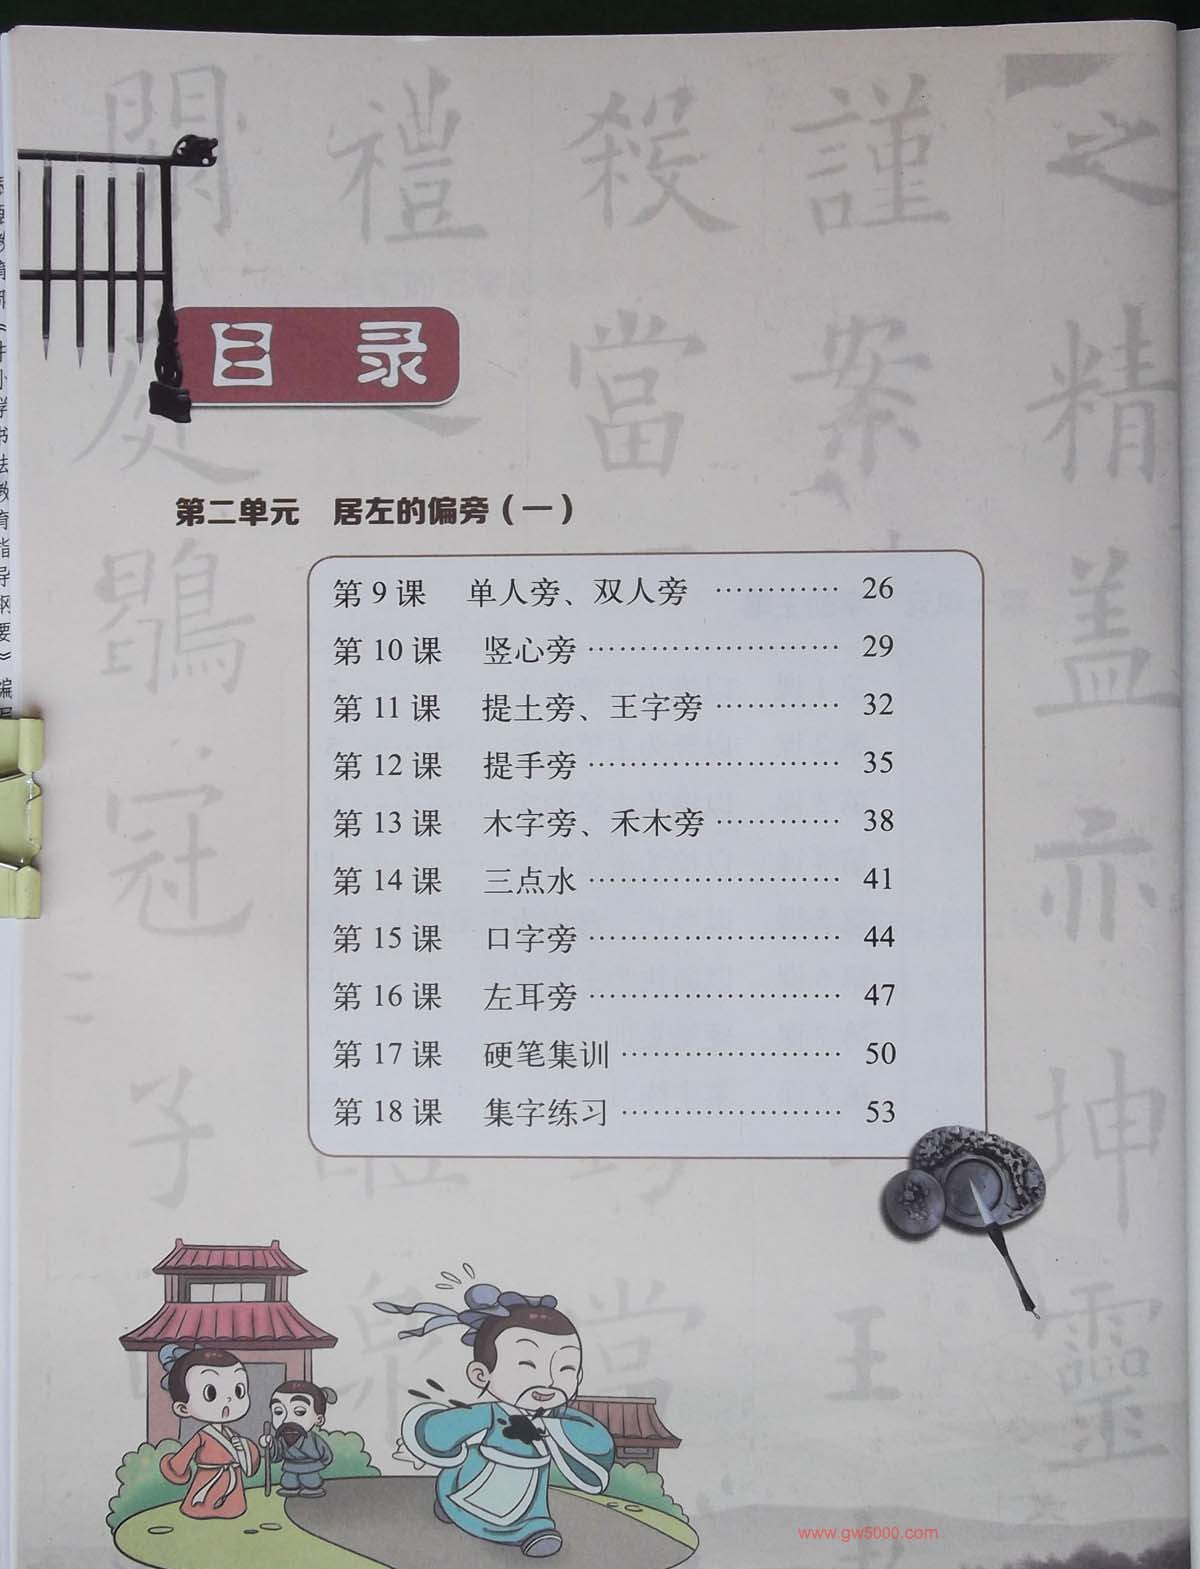 目 录
第二单元 居左的偏旁（一）
第 9 课 单人旁、双人旁 ………… 26
第 10 课 竖心旁 …………………… 29
第 11 课 提土旁、王字旁 ………… 32
第 12 课 提手旁 …………………… 35
第 13 课 木字旁、禾木旁 ………… 38
第 14 课 三点水 …………………… 41
第 15 课 口字旁 …………………… 44
第 16 课 左耳旁 …………………… 47
第 17 课 硬笔集训 ………………… 50
第 18 课 集字练习 ………………… 53
www.gw5000.com